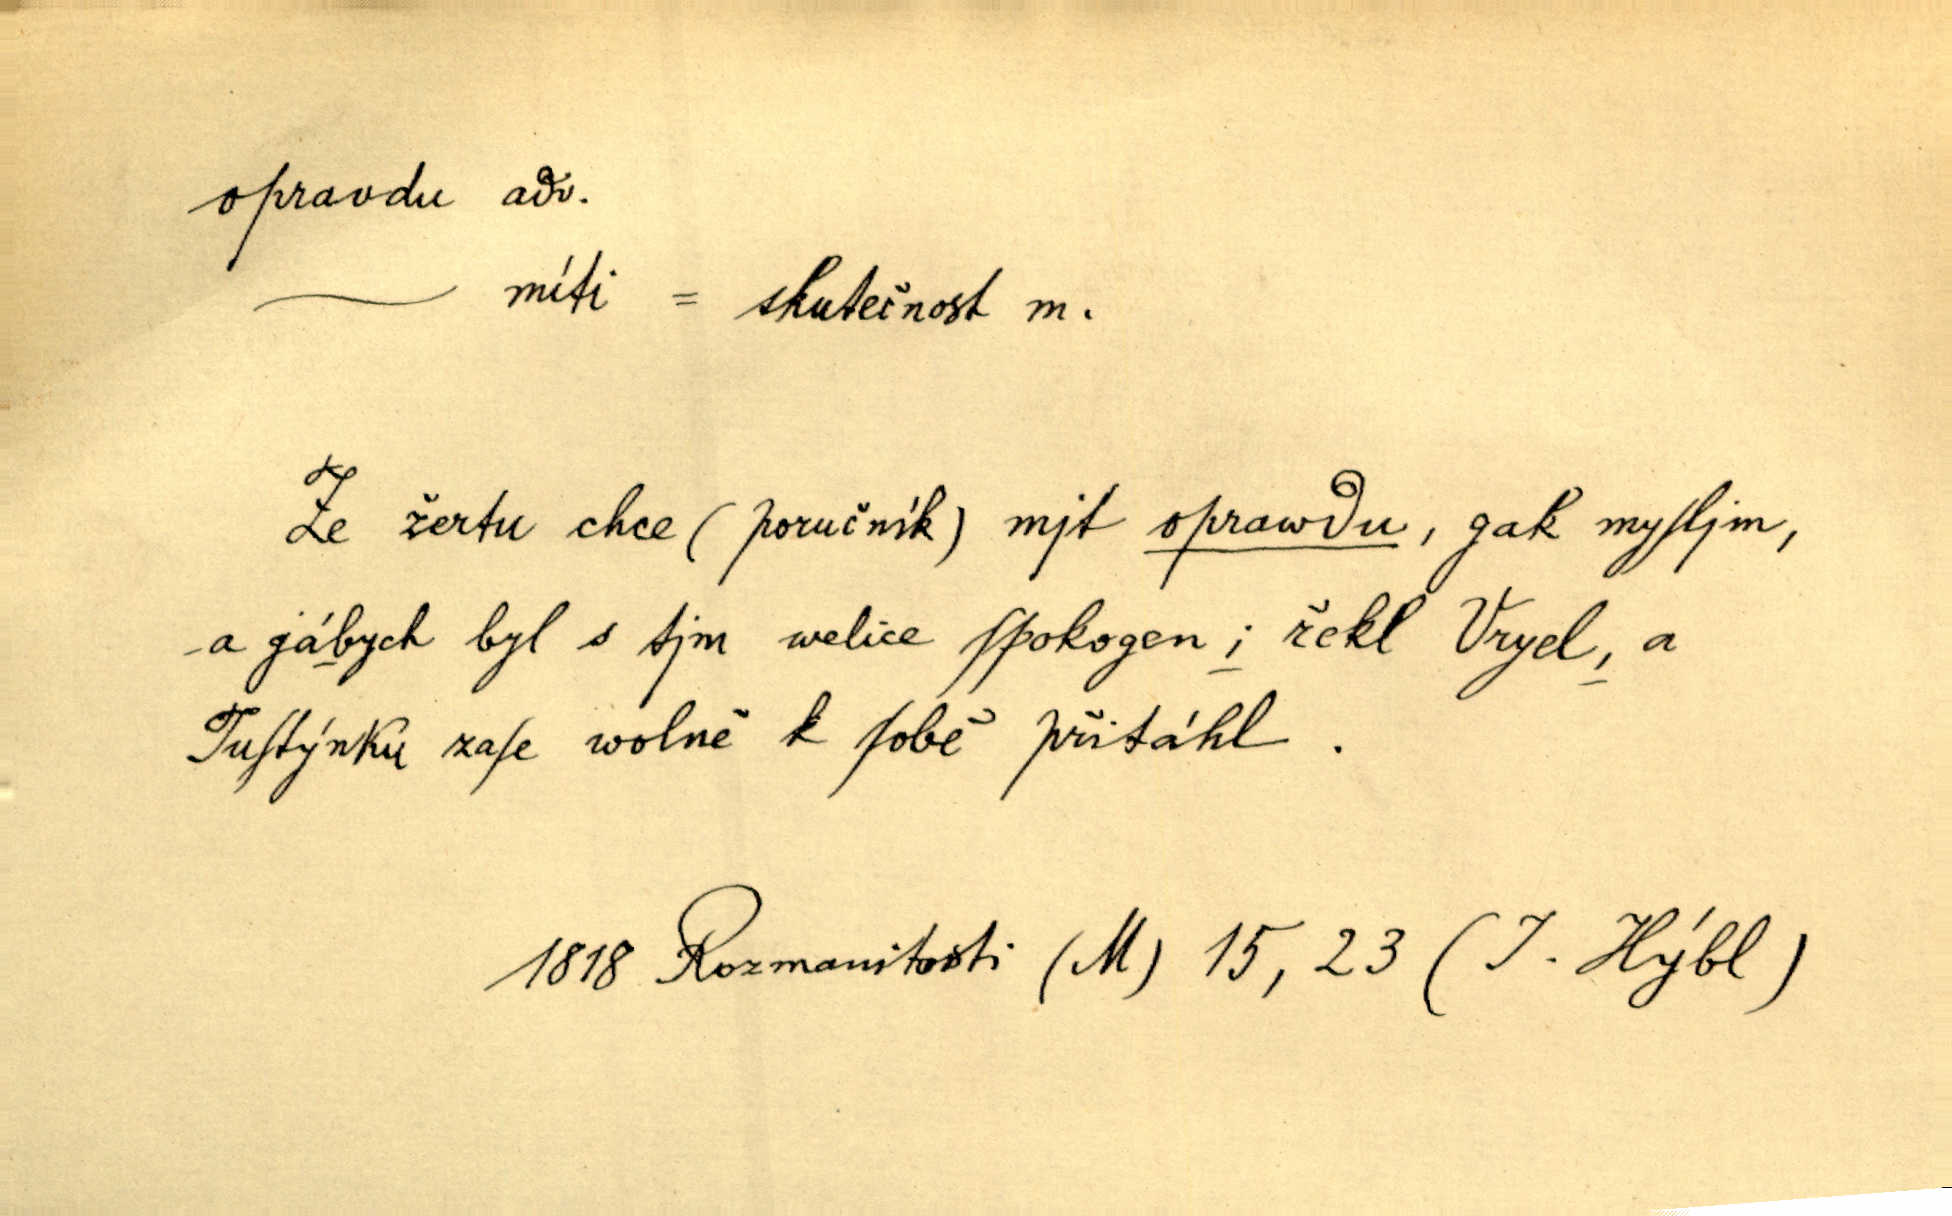 opravdu adv.
⁓ míti = skutečnost m.
Ze žertu chce (poručník) mjt oprawdu, gak myſljm,
a gábych byl s tjm welice ſpokogen; řekl Vryel, a
Tuſtýnku zaſe wolně k ſobě přitáhl.
1818 Rozmanitosti (M) 15, 23 (J. Hýbl)